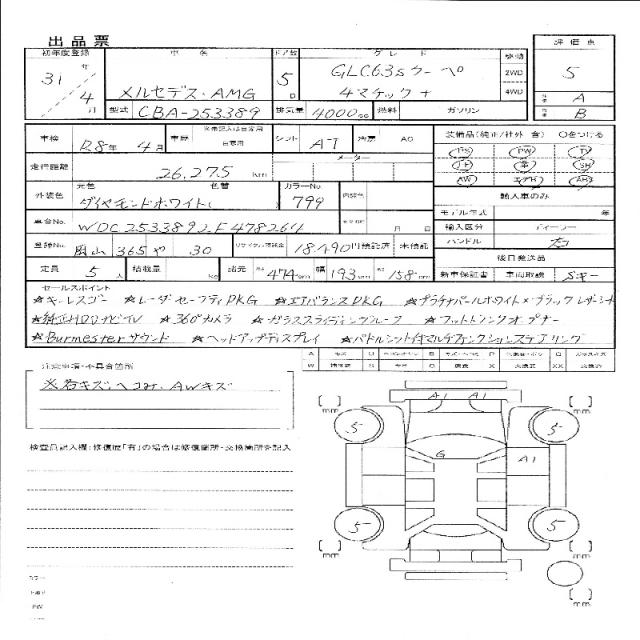 出品票
初年度登録 車名 ドア数 グレード 駆動 評価点
31年 4月 メルセデス・AMG 5 GLC63sクーペ 2WD 5
4マチック+ 4WD A
型式 CBA-253389 排気量 4000cc 燃料 ガソリン B
車検 R8年 4月 車歴 自家用 シフト AT 冷房 AC 装備品(純正/社外 含) ○をつける
走行距離 26,275 km メーター PS PW TV
元色 色替 カラーNo SR
外装色 ダイヤモンドホワイト 799 内装色 AW エアB
輸入車のみ
車台No. WDC2533892F478264 モデル年式 年
輸入区分 ディーラー
登録No. 岡山 365 や 30 リサイクル預託金 18,490円 預託済 未預託 ハンドル 右
後日発送品
定員 5人 積載量 Kg 諸元 長さ 474cm 幅 193cm 高さ 158cm 新車保証書 車両取説 Sキー
セールスポイント
☆キーレスゴー ☆レーダーセーフティPKG ☆エアバランスPKG ☆プラチナパールホワイト×ブラックレザーシート
☆純正HDDナビTV ☆360°カメラ ☆ガラススライディングルーフ ☆フットトランクオープナー
☆Burmesterサウンド ☆ヘッドアップディスプレイ ☆パドルシフト付マルチファンクションステアリング
注意事項・不具合箇所
※若キズ、ヘコミ、AWキズ
検査員記入欄:修復歴「有」の場合は修復箇所・交換箇所を記入
[ ]mm A1 A1 [ ]mm
5 5
G A1
5 5
[ ]mm [ ]mm
[ ]mm